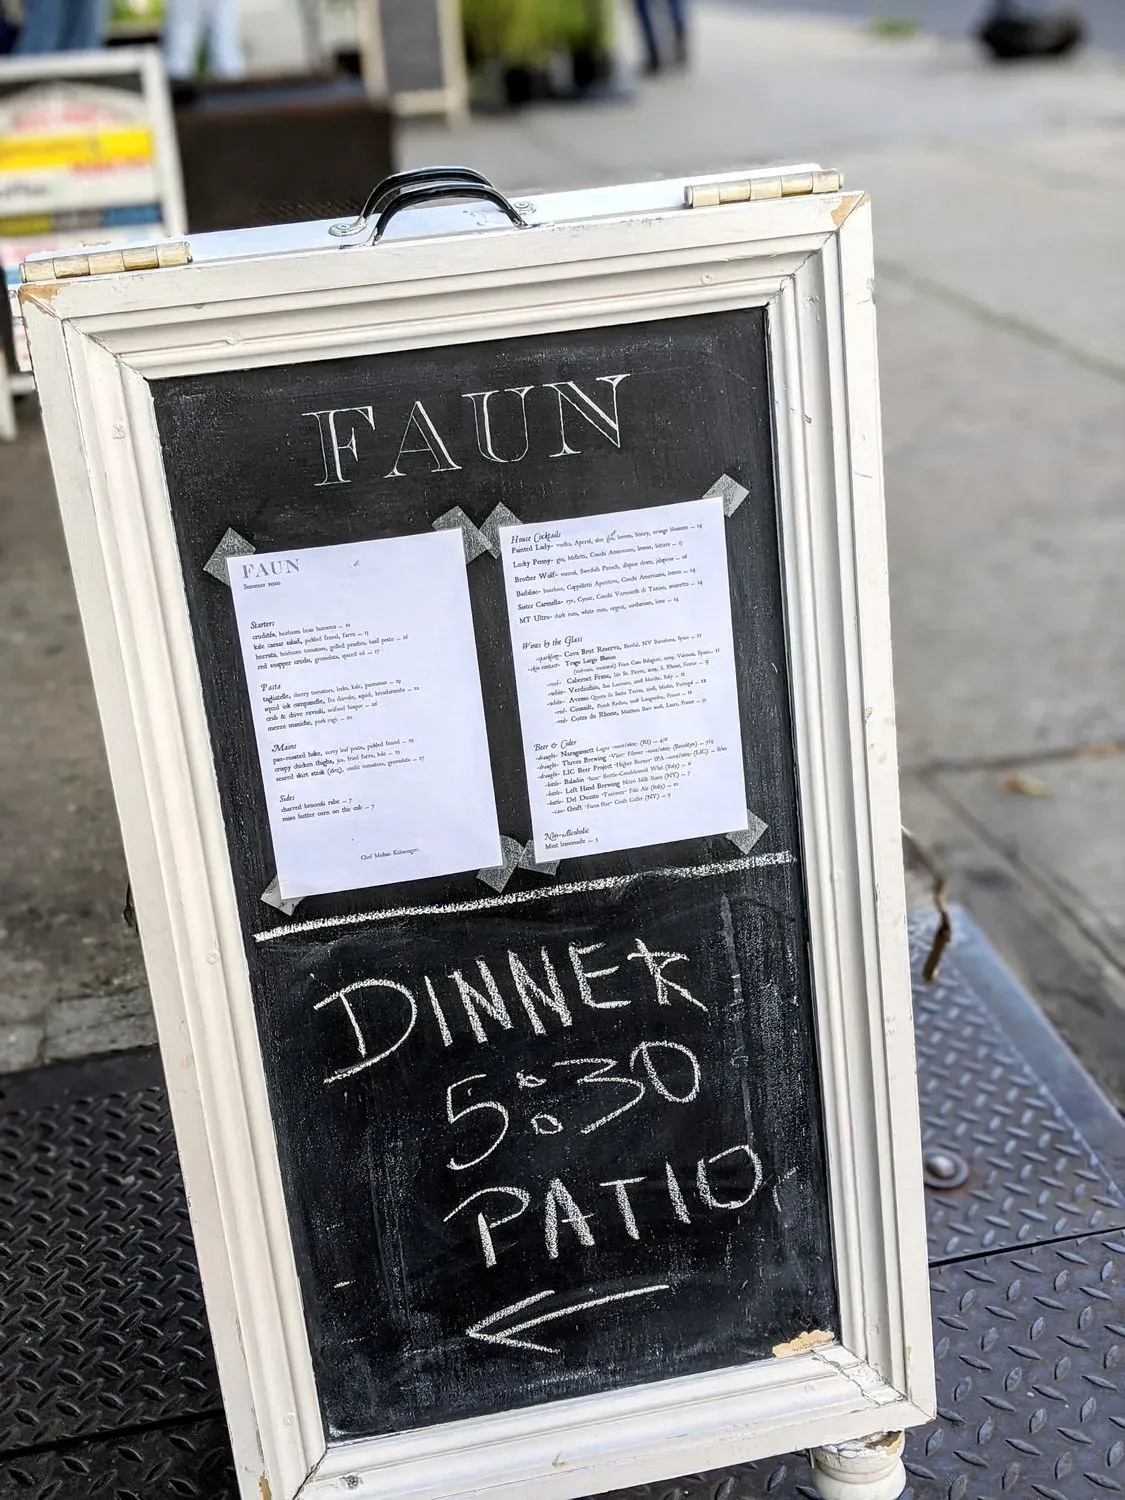 FAUN
FAUN
Summer 2020
Starters
crudités, heirloom bean hummus – 12
kale caesar salad, pickled fennel, farro – 13
burrata, heirloom tomatoes, grilled peaches, basil pesto – 16
red snapper crudo, gremolata, spiced oil – 17
Pasta
tagliatelle, cherry tomatoes, leeks, kale, parmesan – 19
squid ink campanelle, fra diavolo, squid, breadcrumbs – 22
crab & chive ravioli, seafood bisque – 26
mezze maniche, pork ragu – 20
Mains
pan-roasted hake, curry leaf pesto, pickled fennel – 25
crispy chicken thighs, jus, fried farro, kale – 25
seared skirt steak (6oz), confit tomatoes, gremolata – 27
Sides
charred broccoli rabe – 7
miso butter corn on the cob – 7
Chef Mohan
House Cocktails
Painted Lady- vodka, Aperol, sloe gin, lemon, honey, orange blossom – 14
Lucky Penny- gin, Meletti, Cocchi Americano, lemon, bitters – 13
Brother Wolf- mezcal, Swedish Punsch, allspice dram, – 16
Badalisc- bourbon, Cappelletti Aperitivo, Cocchi Americano, lemon – 14
Sister Carmella- rye, Cynar, Cocchi Vermouth di Torino, amaretto – 14
MT Ultra- dark rum, white rum, orgeat, cardamom, lime – 14
Wines by the Glass
-sparkling- Cava Brut Reserva, NV Barcelona, Spain – 12
-skin contact- Trago Largo Blanco
-red- Cabernet Franc,
-white- Verdicchio, San Lorenzo, 2018 Marche, Italy – 11
-white- Avesso Quinta de Santa Teresa, 2018, Minho, Portugal – 12
Cinsault,
-red- Cotes du Rhone,
Beer & Cider
-draught- Narragansett Lager (RI) – 4/6
-draught- Threes Brewing "Vliet" Pilsner (Brooklyn) – 7/9
-draught- LIC Beer Project "Higher Burnin" IPA (LIC) – 8/10
-bottle- Baladin Bottle-Conditioned Whit (Italy) – 11
-bottle- Left Hand Brewing Nitro Milk Stout (NY) – 7
-bottle- Del Ducato Pale Ale (Italy) – 10
-can- Graft "Farm Flor" Craft Cider (NY) – 9
Non-Alcoholic
Mint lemonade – 5
DINNER
5:30
PATIO